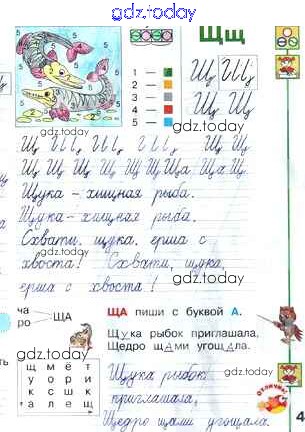 gdz.today
Щщ
5 5 5 5 5
1 —
2 —
3 —
4 —
5 —
Щ Щ
Щ Щ
gdz.today
Щ Щ Щ Щ
gdz.today
Щ Щ Щ Щ Щ Щ Ща Ща Щ
Щука – хищная рыба.
Щука – хищная рыба.
Схвати, щука, ерша с
хвоста! Схвати, щука,
ерша с хвоста!
gdz.today
ча
ро
ЩА
ЩА пиши с буквой А.
Щука рыбок приглашала,
Щедро щАми угощАла.
gdz.today
щ м ё т
у о р и
к с ш к
а л е щ
Щука рыбок
приглашала,
Щедро щами угощала.
отлично
4
gdz.today